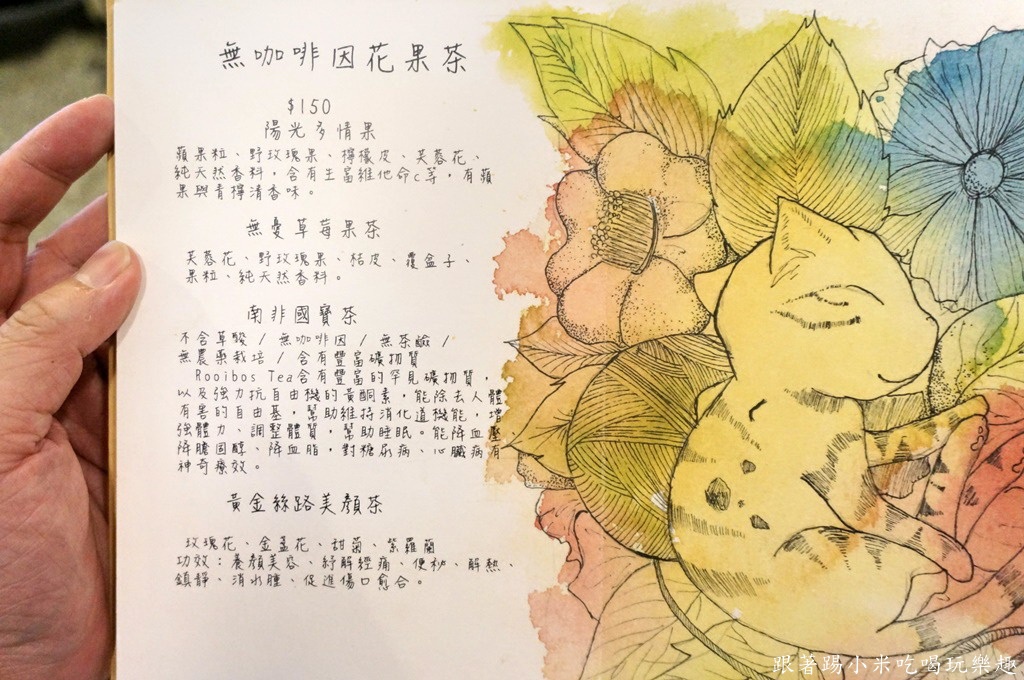 無咖啡因花果茶
$150
陽光多情果
蘋果粒、野玫瑰果、檸檬皮、芙蓉花、
純天然香料，含有生富維他命c等，有蘋
果與青檸清香味。
無憂草莓果茶
芙蓉花、野玫瑰果、桔皮、覆盆子、
果粒、純天然香料。
南非國寶茶
不含草酸 / 無咖啡因 / 無茶鹼 /
無農藥栽培 / 含有豐富礦物質
Rooibos Tea含有豐富的罕見礦物質，
以及強力抗自由機的黃酮素，能除去人體
有害的自由基，幫助維持消化道機能，增
強體力、調整體質，幫助睡眠。能降血壓
降膽固醇、降血脂，對糖尿病、心臟病有
神奇療效。
黃金絲路美顏茶
玫瑰花、金盞花、甜菊、紫羅蘭
功效：養顏美容、紓解經痛、便秘、解熱、
鎮靜、消水腫、促進傷口愈合。
跟著踢小米吃喝玩樂趣